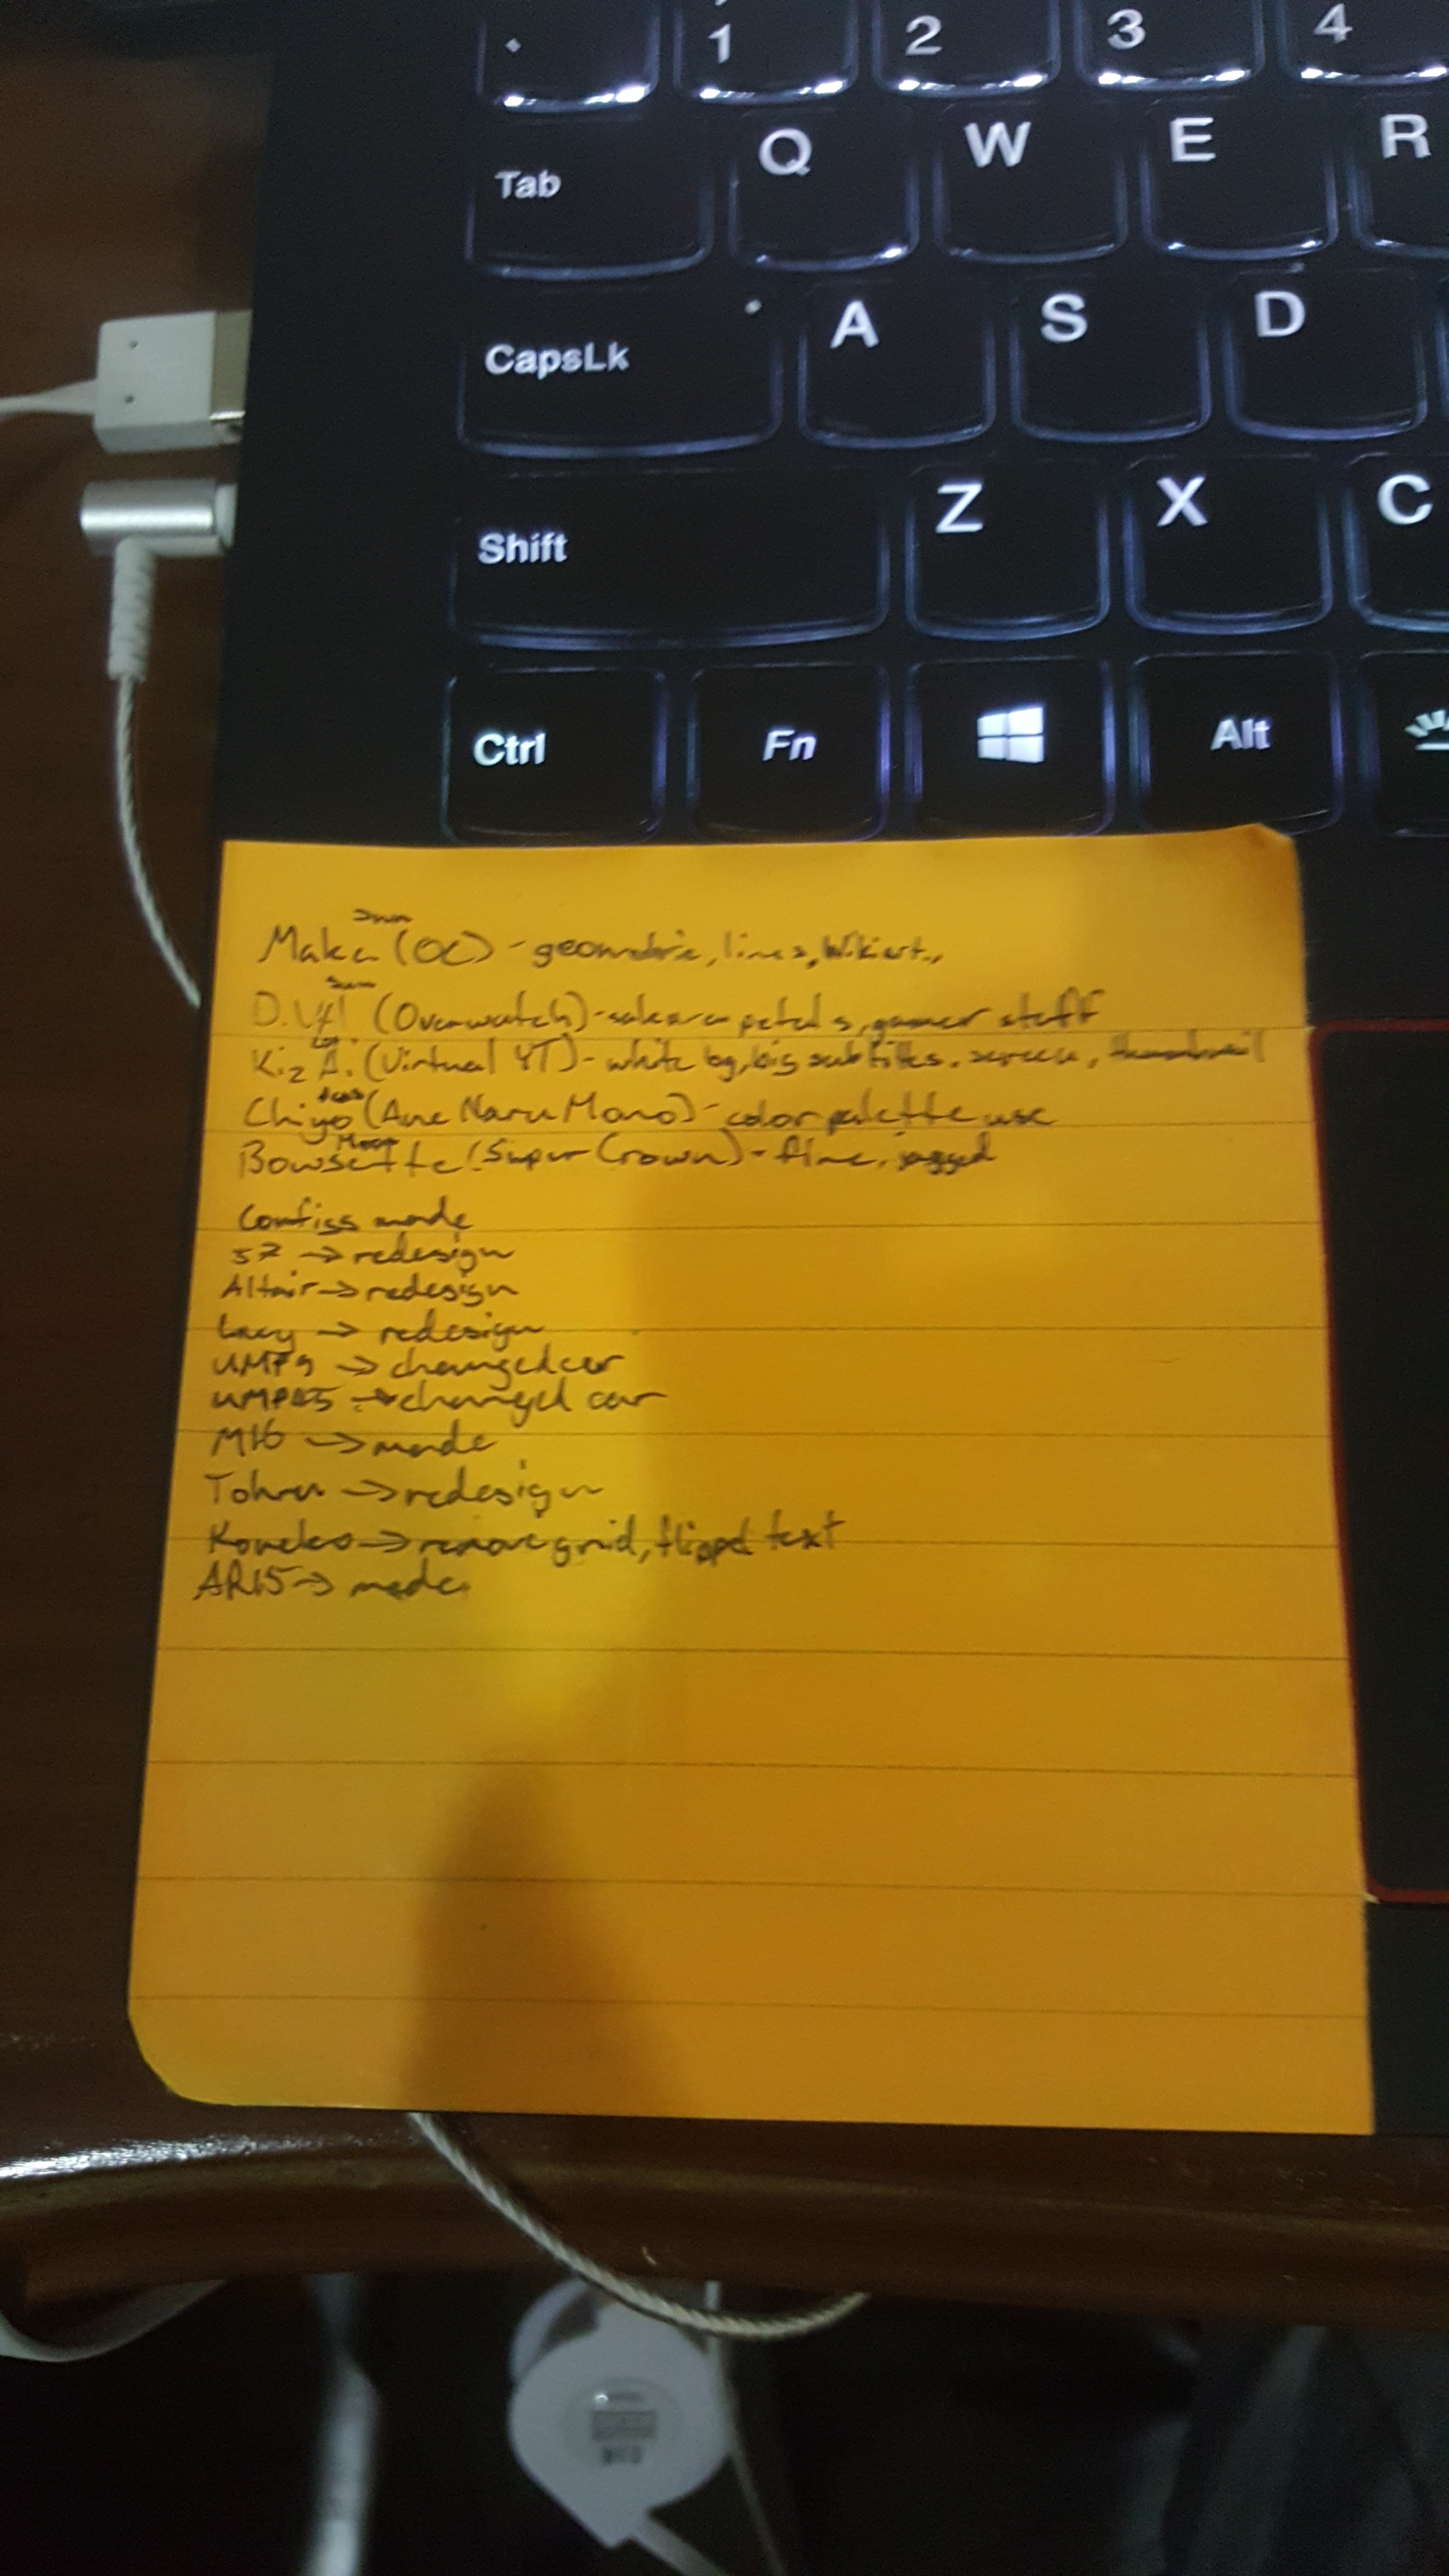 1 2 3 4
Tab Q W E R
CapsLk A S D
Shift Z X C
Ctrl Fn Alt
Maka (OC) - geometric, lines, Wikiart.,
D.Va (Overwatch) - sakura petals, gamer stuff
Kiz Ai (Virtual YT) - white bg, big subtitles, screen, thumbnail
Chiyo (Ane Naru Mono) - color palette use
Bowsette (Super Crown) - flame, jagged
made
57 → redesign
Altair → redesign
Lucy → redesign
UMP9 → changed car
UMP45 → changed car
M16 → made
Tohru → redesign
Koneko → remove grid, flipped text
AR15 → made